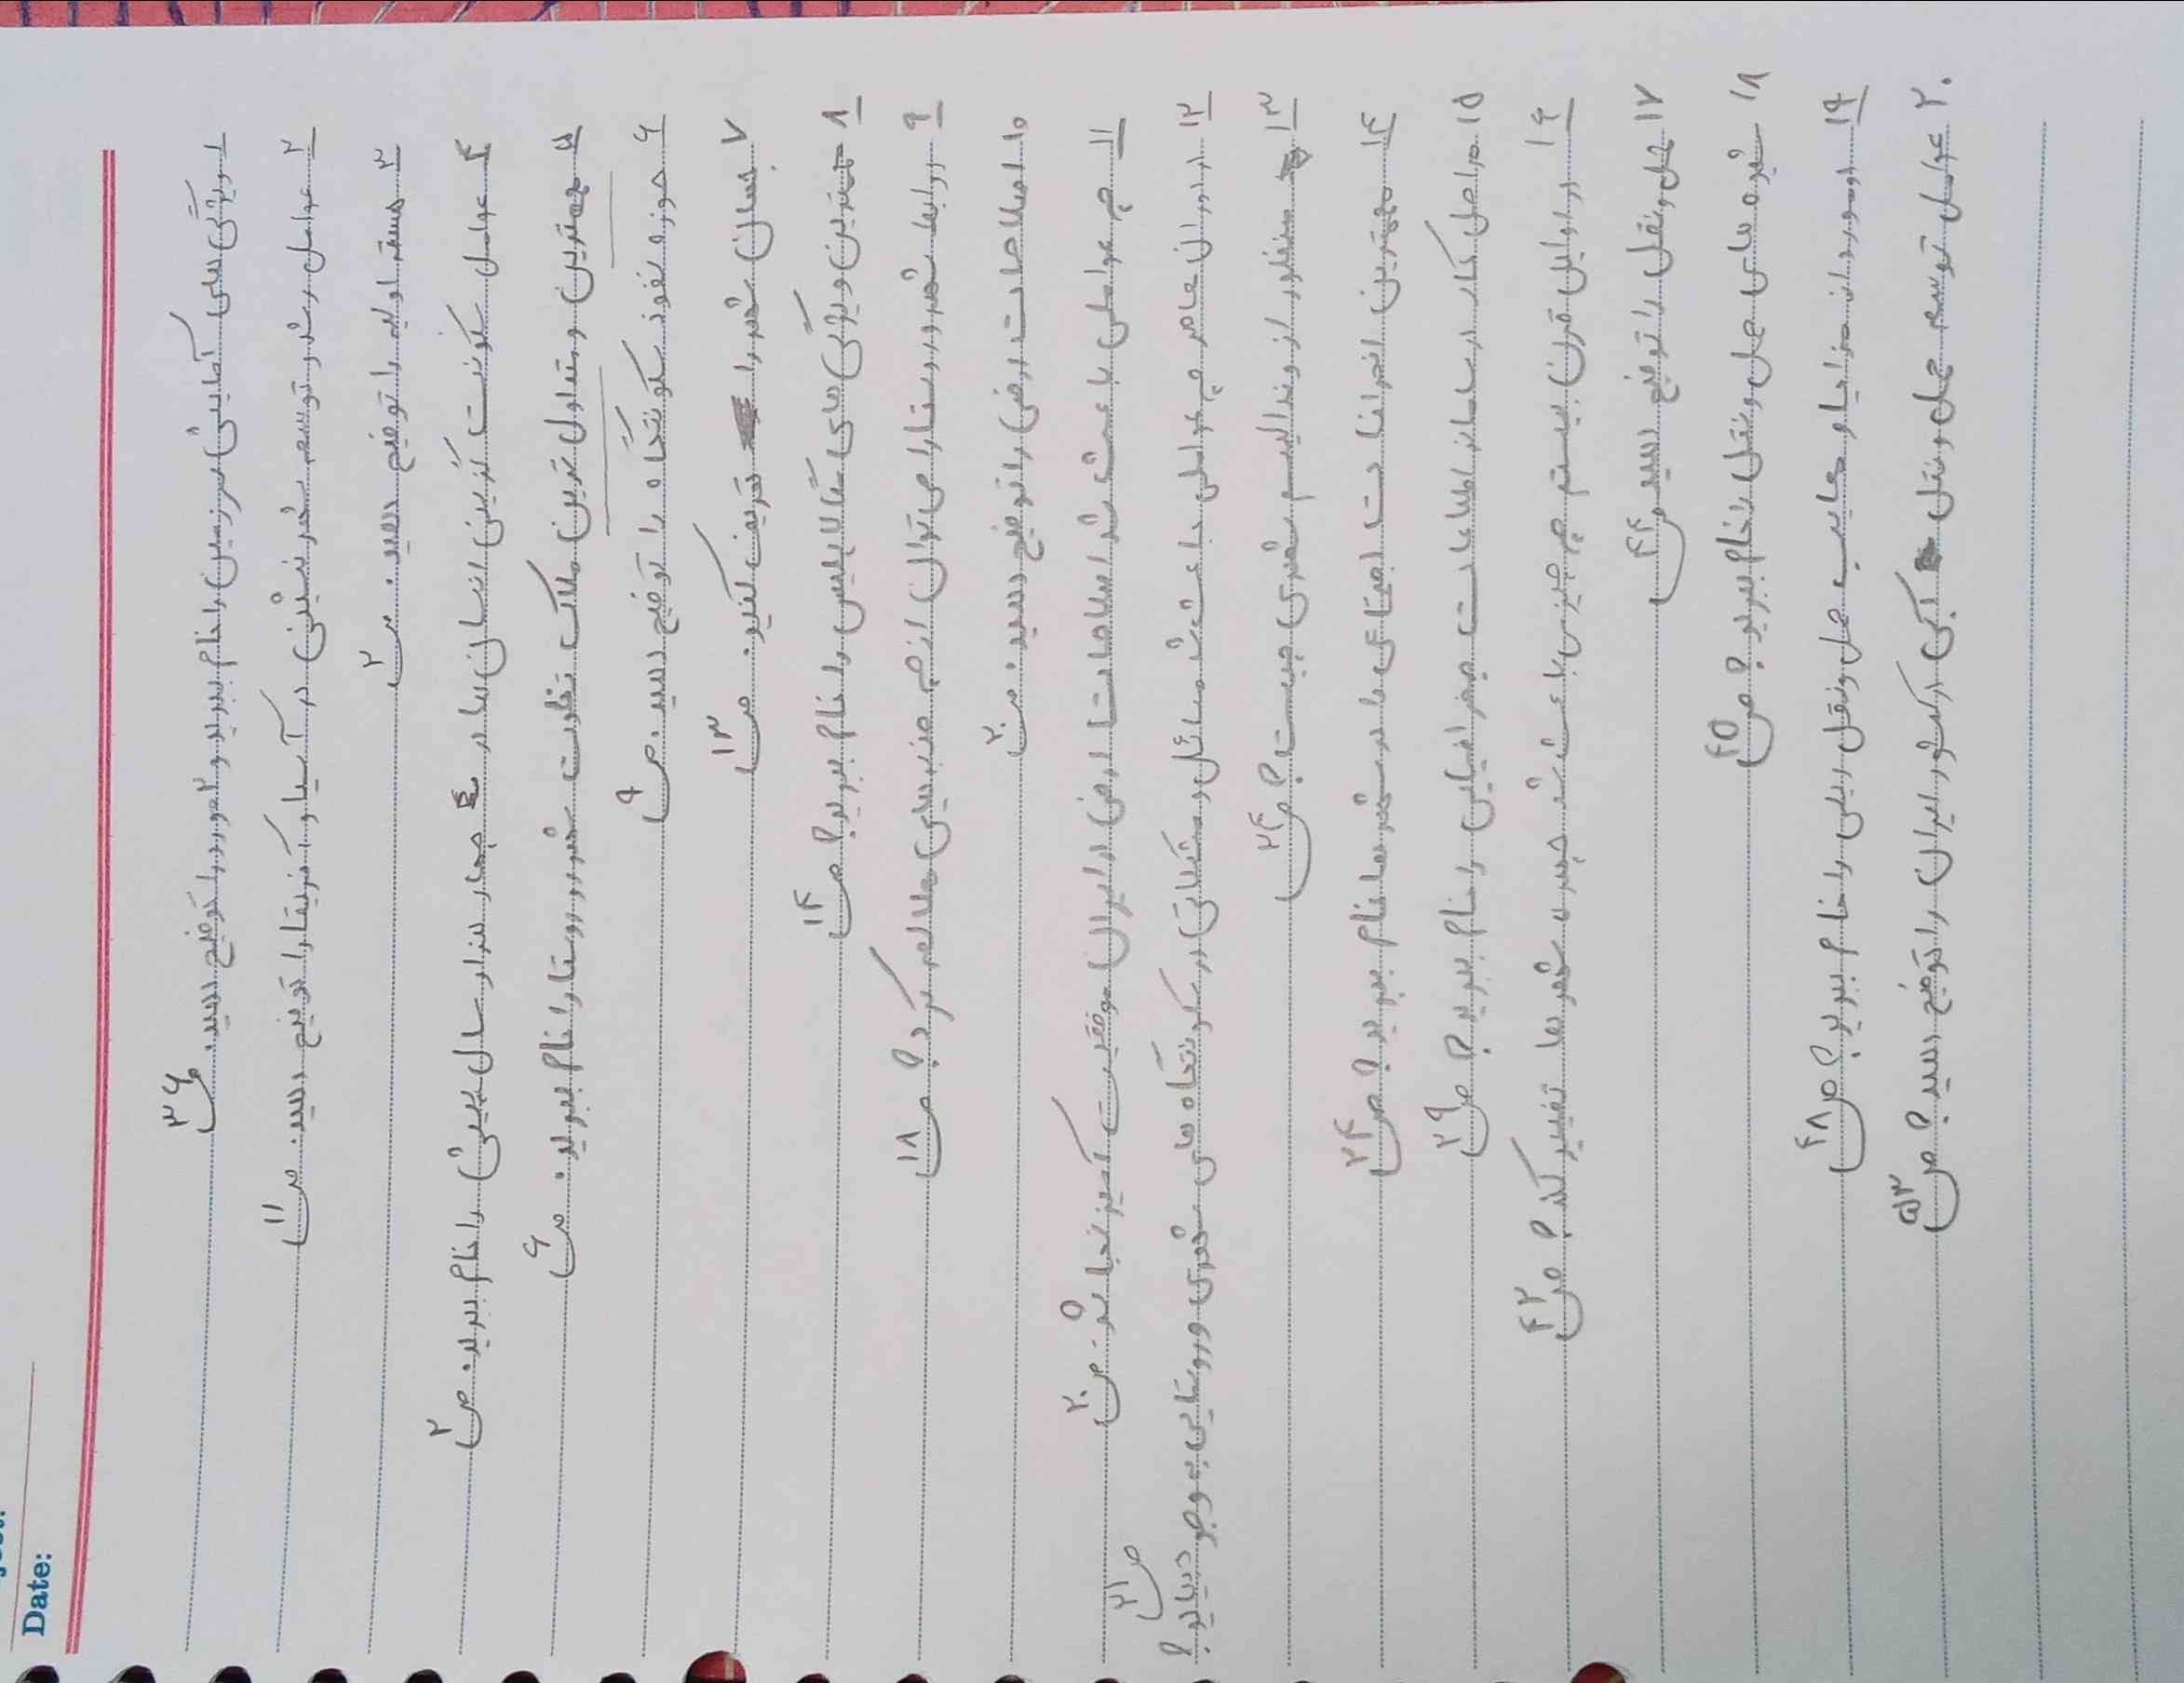 Date:
۱ ویژگی های آمایش سرزمین را نام ببرید و ۲ مورد را توضیح دهید. ص ۳۶
۲ عوامل رشد و توسعه شهر نشینی در آسیا و آفریقا را توضیح دهید. ص ۱۱
۳ هسته اولیه را توضیح دهید. ص ۲
۴ عوامل سکونت گزینی انسان ها در چهار هزار سال پیش را نام ببرید. ص ۲
۵ مهمترین و متداول ترین ملاک تفاوت شهر و روستا را نام ببرید. ص ۶
۶ حوزه نفوذ سکونتگاه را توضیح دهید. ص ۹
۷ جهان شهر را تعریف کنید. ص ۱۳
۸ ویژگی های مگالاپلیس را نام ببرید؟ ص ۱۴
۹ روابط شهر و روستا را می توان از چه جنبه هایی مطالعه کرد؟ ص ۱۸
۱۰ اصلاحات ارضی را توضیح دهید. ص ۲۰
۱۱ چه عواملی باعث شد اصلاحات ارضی در ایران موفقیت آمیز نباشد. ص ۲۰
۱۲ در دوران معاصر چه عواملی باعث شد مسائل و مشکلاتی در سکونتگاه های شهری و روستایی به وجود بیاید؟ ص ۲۱
۱۳ منظور از وندالیسم شهری چیست؟ ص ۲۴
۱۴ مهمترین انحرافات اجتماعی را در شهرها نام ببرید؟ ص ۲۴
۱۵ مراحل کار در سامانه اطلاعات جغرافیایی را نام ببرید؟ ص ۳۹
۱۶ در اوایل قرن بیستم چه چیزی باعث شد چهره شهر ها تغییر کند؟ ص ۴۲
۱۷ حمل و نقل را توضیح دهید ص ۴۴
۱۸ شیوه های حمل و نقل را نام ببرید؟ ص ۴۵
۱۹ دو مورد از مزایا و معایب حمل و نقل ریلی را نام ببرید؟ ص ۴۸
۲۰ عوامل توسعه حمل و نقل آبی در کشور ایران را توضیح دهید؟ ص ۵۳